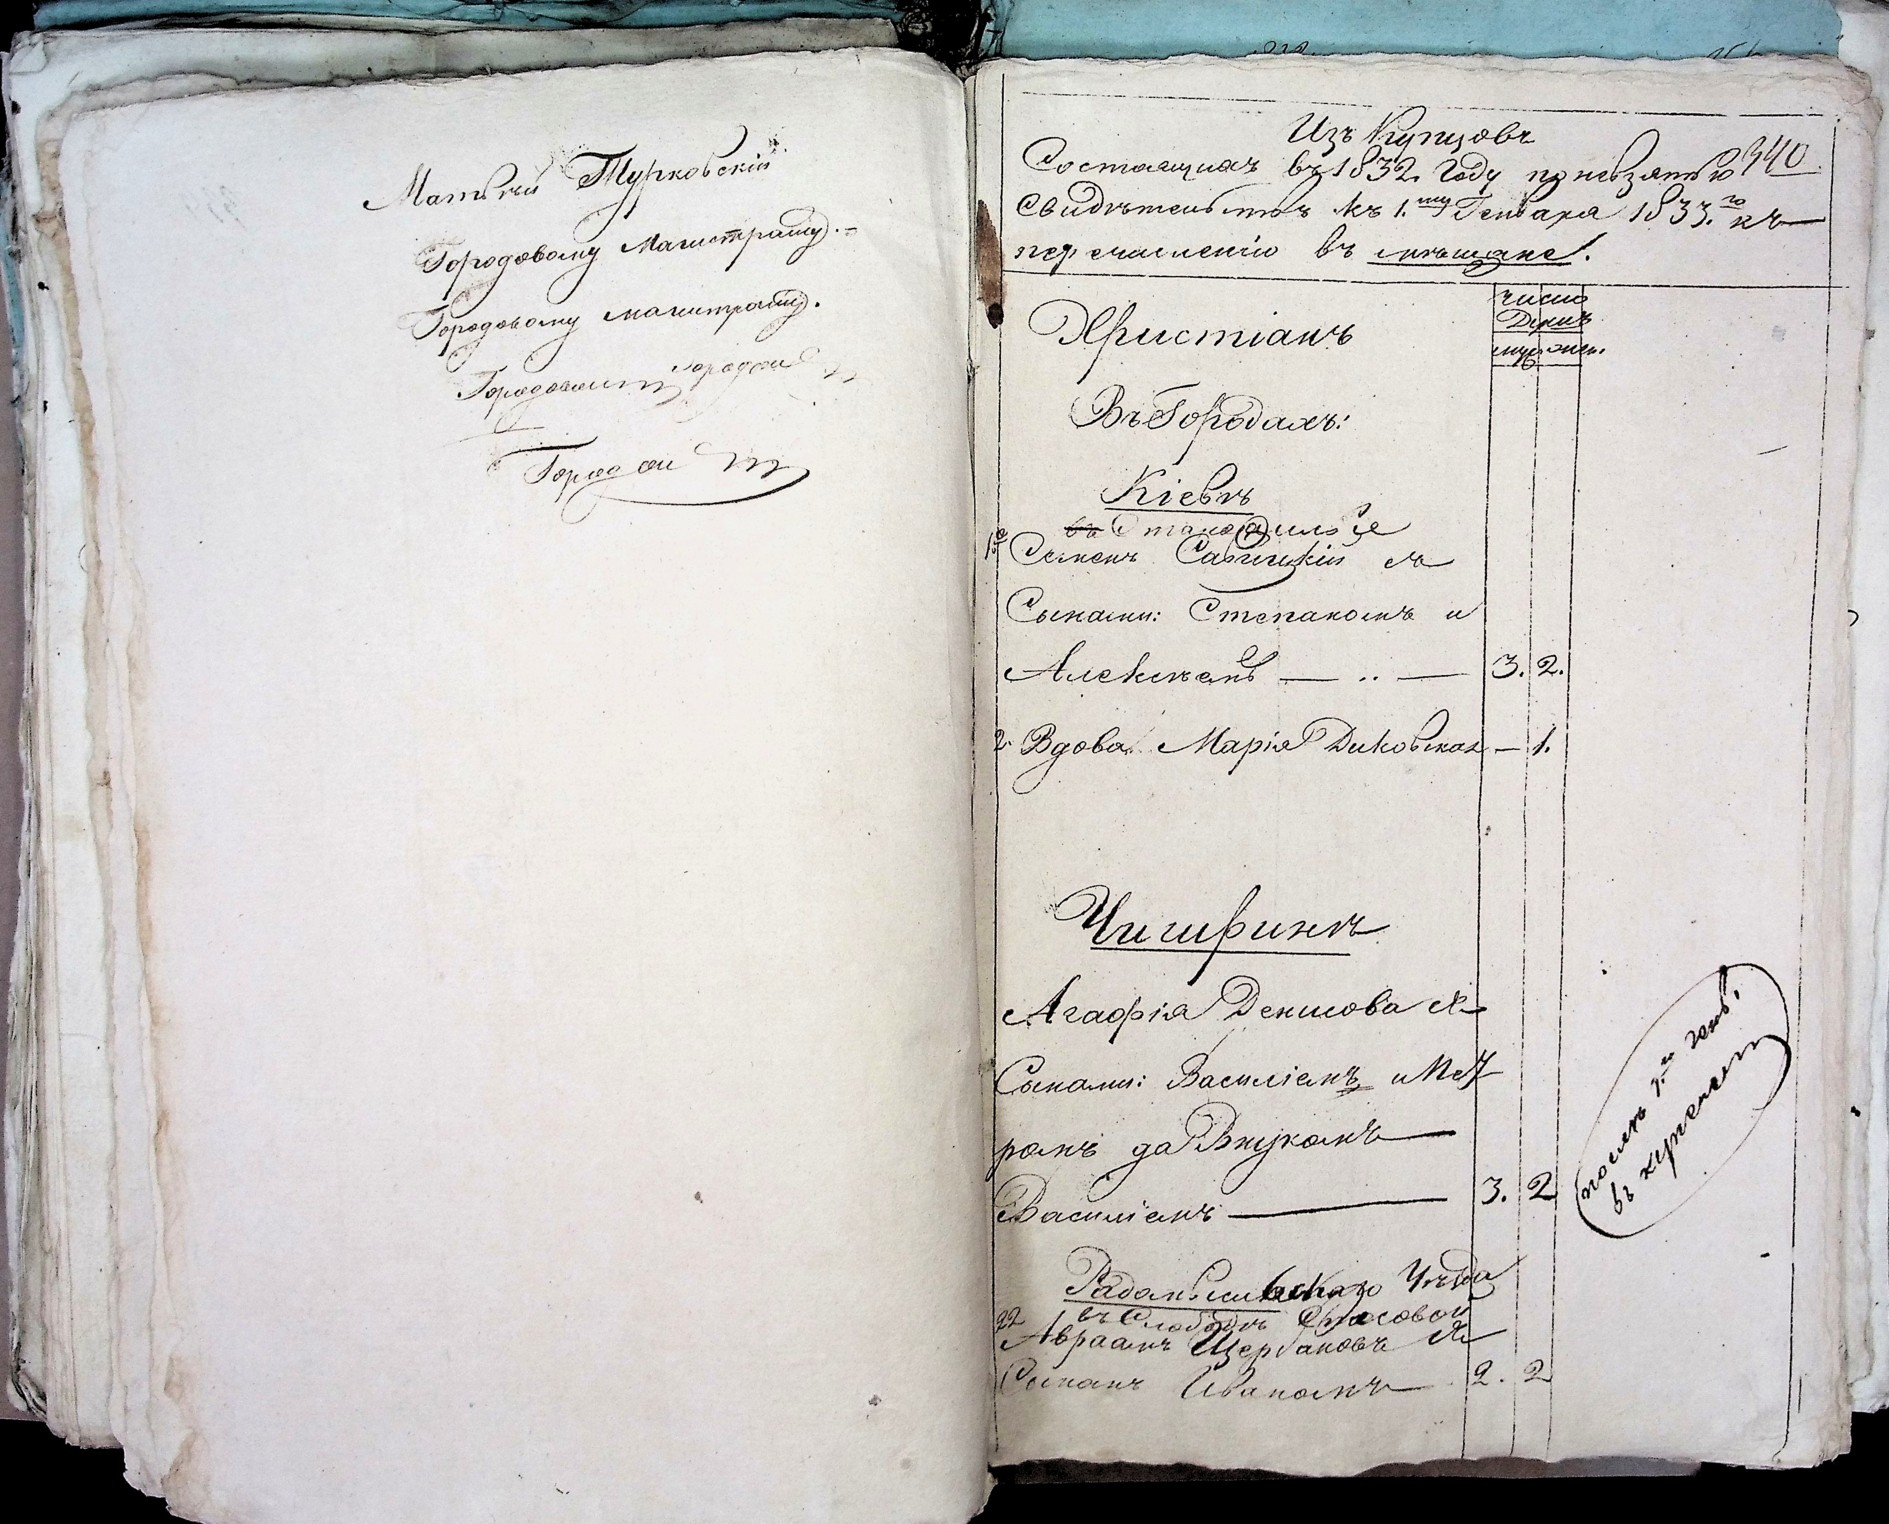 Матвѣй Турковскій
Городовому Магистрату.
Городовому магистрату.
Городовому
Город
Изъ Купцовъ
340
Состоящихъ въ 1832. Году по невзятью
Свидѣтельствъ къ 1.му Генваря 1833.го къ
перечисленію въ мѣщане.
Христіанъ
число
Душъ
муж. жен.
Въ Городахъ:
Кіевѣ
Семенъ Савицкій съ
Сынами: Степаномъ и
Алексѣемъ — .. — 3. 2.
2. Вдова Марія Диковская — 1.
Чигиринѣ
Агафія Денисова съ
Сынами: Василіемъ и Пет
ромъ да Внукомъ —
Василіемъ — 3. 2
послѣ 1.го генв.
въ
Радомысльскаго Уѣзда
22 въ Слободѣ
Авраамъ Щербаковъ съ
Сыномъ Иваномъ — 2. 2